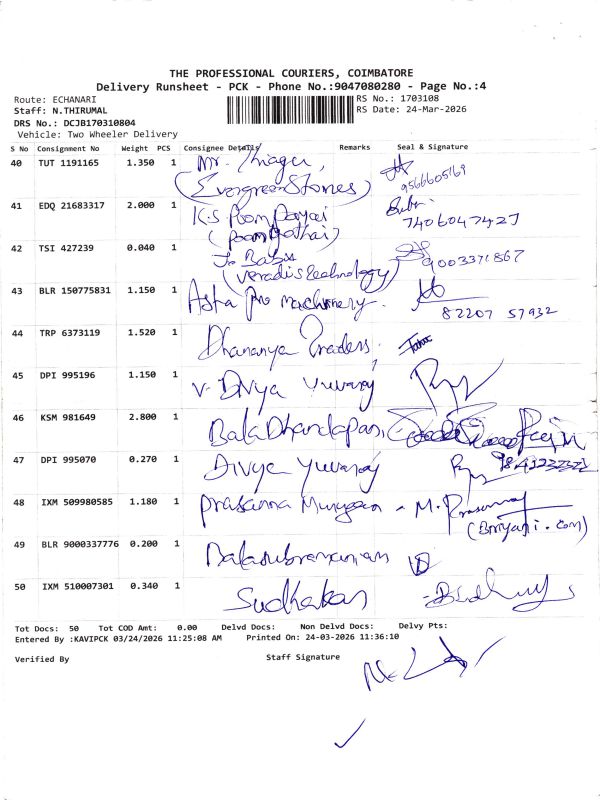 THE PROFESSIONAL COURIERS, COIMBATORE
Delivery Runsheet - PCK - Phone No.:9047080280 - Page No.:4
Route: ECHANARI RS No.: 1703108
Staff: N.THIRUMAL RS Date: 24-Mar-2026
DRS No.: DCJB170310804
Vehicle: Two Wheeler Delivery
S No Consignment No Weight PCS Consignee Details Remarks Seal & Signature
40 TUT 1191165 1.350 1 Mr. Thiagu,
(Evergreen Stones) 9566605169
41 EDQ 21683317 2.000 1 K.S. Poom Pavai
(poom pothai) 7406047427
42 TSI 427239 0.040 1 To Babu 9003371867
(veradis technology)
43 BLR 150775831 1.150 1 Astra Pro machinery. 82207 57932
44 TRP 6373119 1.520 1 Dhananya Traders,
45 DPI 995196 1.150 1 V. Divya Yuvaraj
46 KSM 981649 2.800 1 Bala Dhandapani
47 DPI 995070 0.270 1 Divya Yuvaraj
48 IXM 509980585 1.180 1 Prasanna Murugan - M. Prasanna
(Briyani . com)
49 BLR 9000337776 0.200 1 Balasubramanian
50 IXM 510007301 0.340 1 Sudhakar
Tot Docs: 50 Tot COD Amt: 0.00 Delvd Docs: Non Delvd Docs: Delvy Pts:
Entered By :KAVIPCK 03/24/2026 11:25:08 AM Printed On: 24-03-2026 11:36:10
Verified By Staff Signature